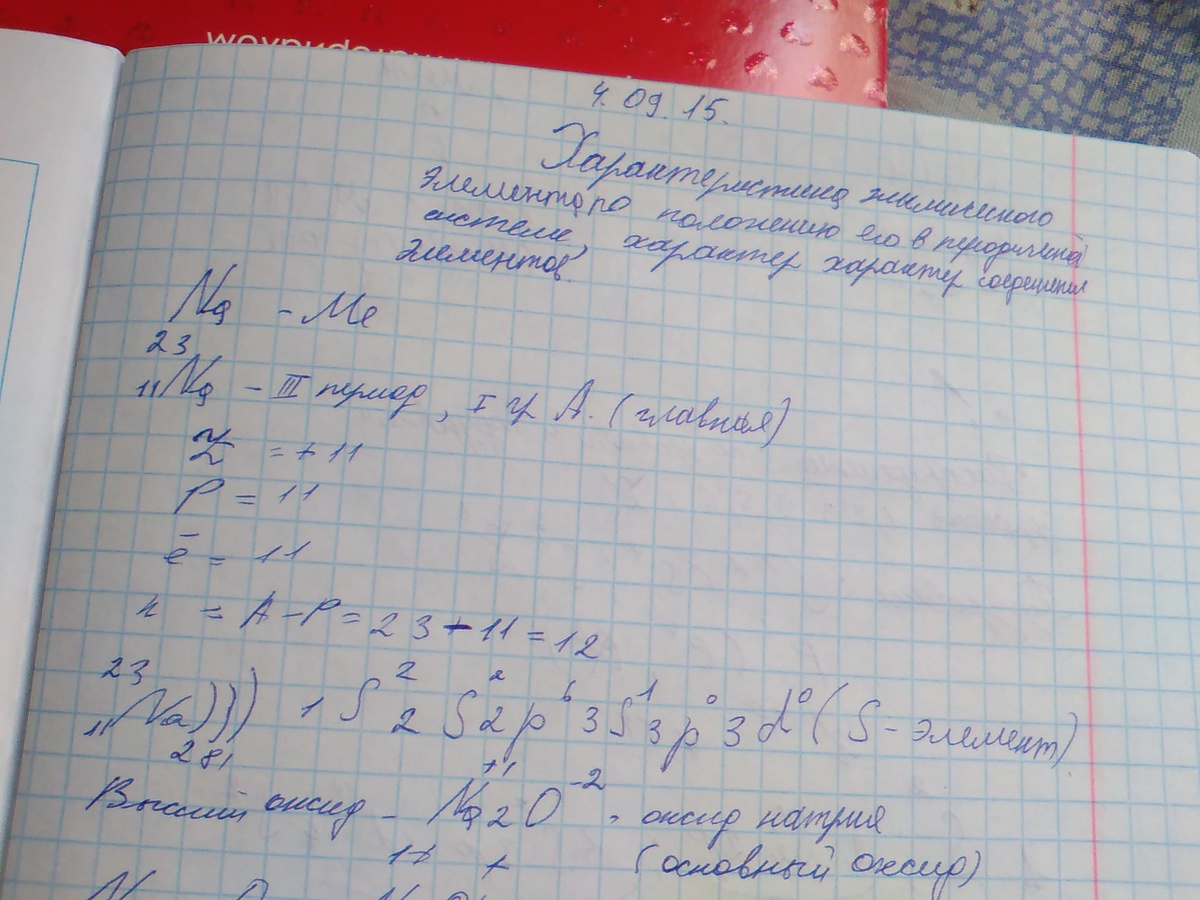 4.09.15.
Характеристика химического
элемента по положению его в периодической
системе, характер характер соединения
элементов.
Na - Me
23
11Na - III период, I гр А. (главная)
Z = +11
P = 11
ē = 11
n = A - P = 23 - 11 = 12
23
11Na))) 1S² 2S² 2p⁶ 3S¹ 3p⁰ 3d⁰ (S - элемент)
2 8 1
+1 -2
Высший оксид - Na2O - оксид натрия
(основный оксид)